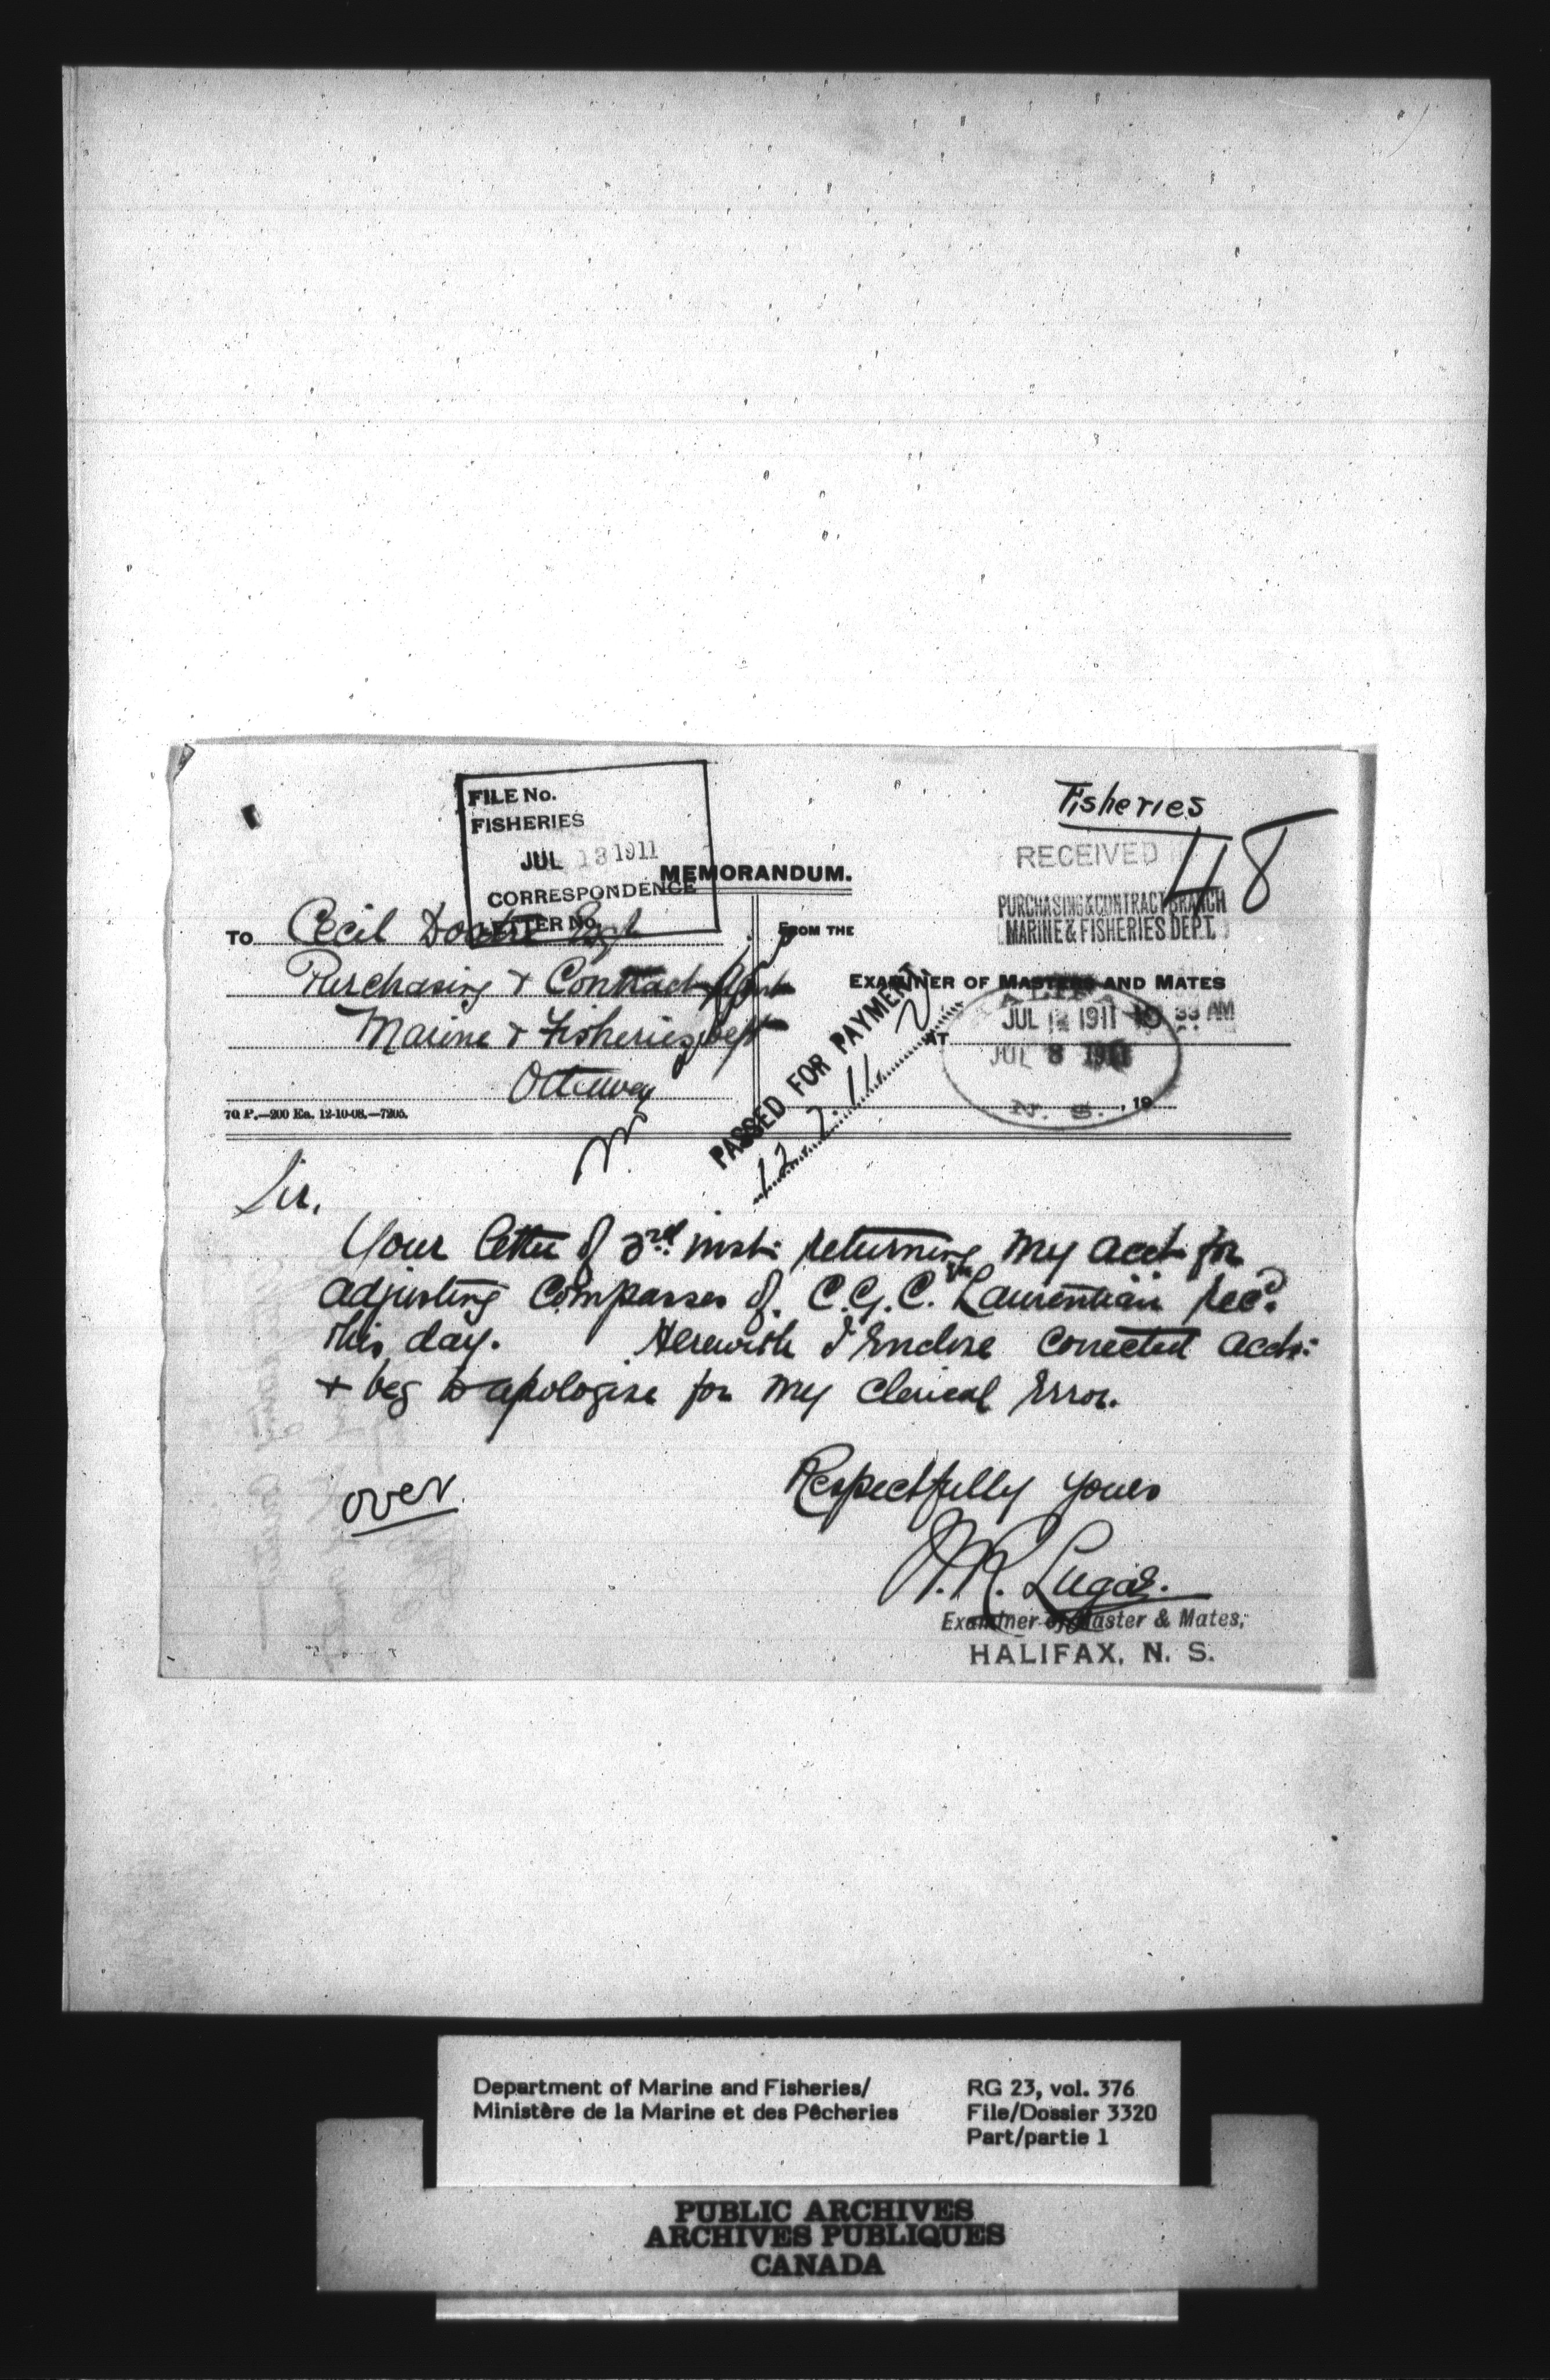 Fisheries
48
FILE No.
FISHERIES
JUL 13 1911
CORRESPONDENCE
LETTER No.
MEMORANDUM.
RECEIVED
PURCHASING & CONTRACT BRANCH
MARINE & FISHERIES DEPT.
TO Cecil Doutre Esq
Purchasing & Contract Agent
Marine & Fisheries Dept
Ottawa
FROM THE
EXAMINER OF MASTERS AND MATES
HALIFAX
JUL 12 1911 10 33 AM
AT
JUL 8 1911
N. S. , 19
70 P.—200 Ea. 12-10-08.—7205.
PASSED FOR PAYMENT
12.7.11
Sir,
Your letter of 3rd inst: returning my acct: for
adjusting Compasses of C.G.C. Laurentian Rec'd
this day. Herewith I Enclose Corrected acct:
+ beg to apologise for my Clerical Error.
over
Respectfully Yours
Lugar.
Examiner of Master & Mates,
HALIFAX, N. S.
Department of Marine and Fisheries/
Ministère de la Marine et des Pêcheries
RG 23, vol. 376
File/Dossier 3320
Part/partie 1
PUBLIC ARCHIVES
ARCHIVES PUBLIQUES
CANADA